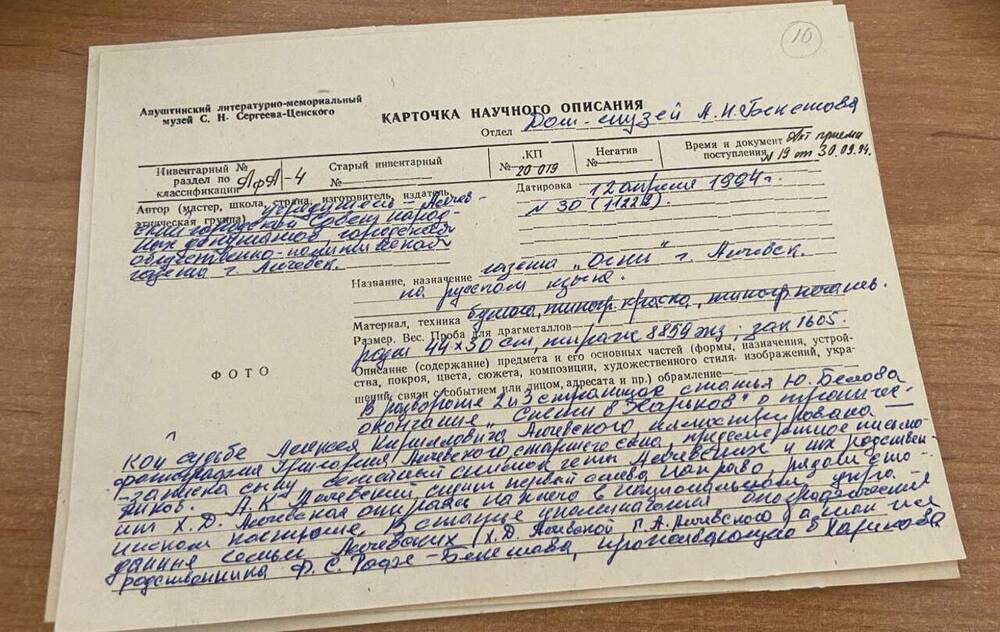 10
Алуштинский литературно-мемориальный
музей С. Н. Сергеева-Ценского
КАРТОЧКА НАУЧНОГО ОПИСАНИЯ
Отдел Дом-музей А.Н. Бекетова
Инвентарный №
раздел по
классификации АфА-4
Старый инвентарный
№
КП
№ 20 079
Негатив
№
Время и документ Акт приема
поступления № 19 от 30.09.94.
Автор (мастер, школа, страна, изготовитель, издатель,
этническая группа) учредитель Алчев-
ский городской Совет народ-
ных депутатов городская
общественно-политической
газета г. Алчевск.
Датировка 12 апреля 1994 г.
№ 30 (11222).
Название, назначение газета "Огни" г. Алчевск.
на русском языке.
Материал, техника бумага, типогр. краска, типогр. печать.
Размер. Вес. Проба для драгметаллов
разм 44×30 см, тираж 8859 экз; зак 1605.
Описание (содержание) предмета и его основных частей (формы, назначения, устрой-
ства, покроя, цвета, сюжета, композиции, художественного стиля изображений, укра-
шений, связи с событием или лицом, адресата и пр.) обрамление
ФОТО
В развороте 2 и 3 страницах статья Ю. Белова
окончание "Степи в Харьков" о трагичес-
кой судьбе Алексея Кирилловича Алчевского иллюстрирована —
фотография Григория Алчевского, старшего сына, предсмертное письмо-
-записка сыну, семейный снимок четы Алчевских и их родствен-
ников. А.К. Алчевский, сидит первый слева направо, рядом сто-
ит Х.Д. Алчевская опираясь на него в национальном укра-
инском костюме. В статье упоминания биографические
данные семьи Алчевских (Х.Д. Алчевской, Г.А. Алчевского, а также
родственника Ф.С. Рофе-Бекетова, проживающего в Харькове